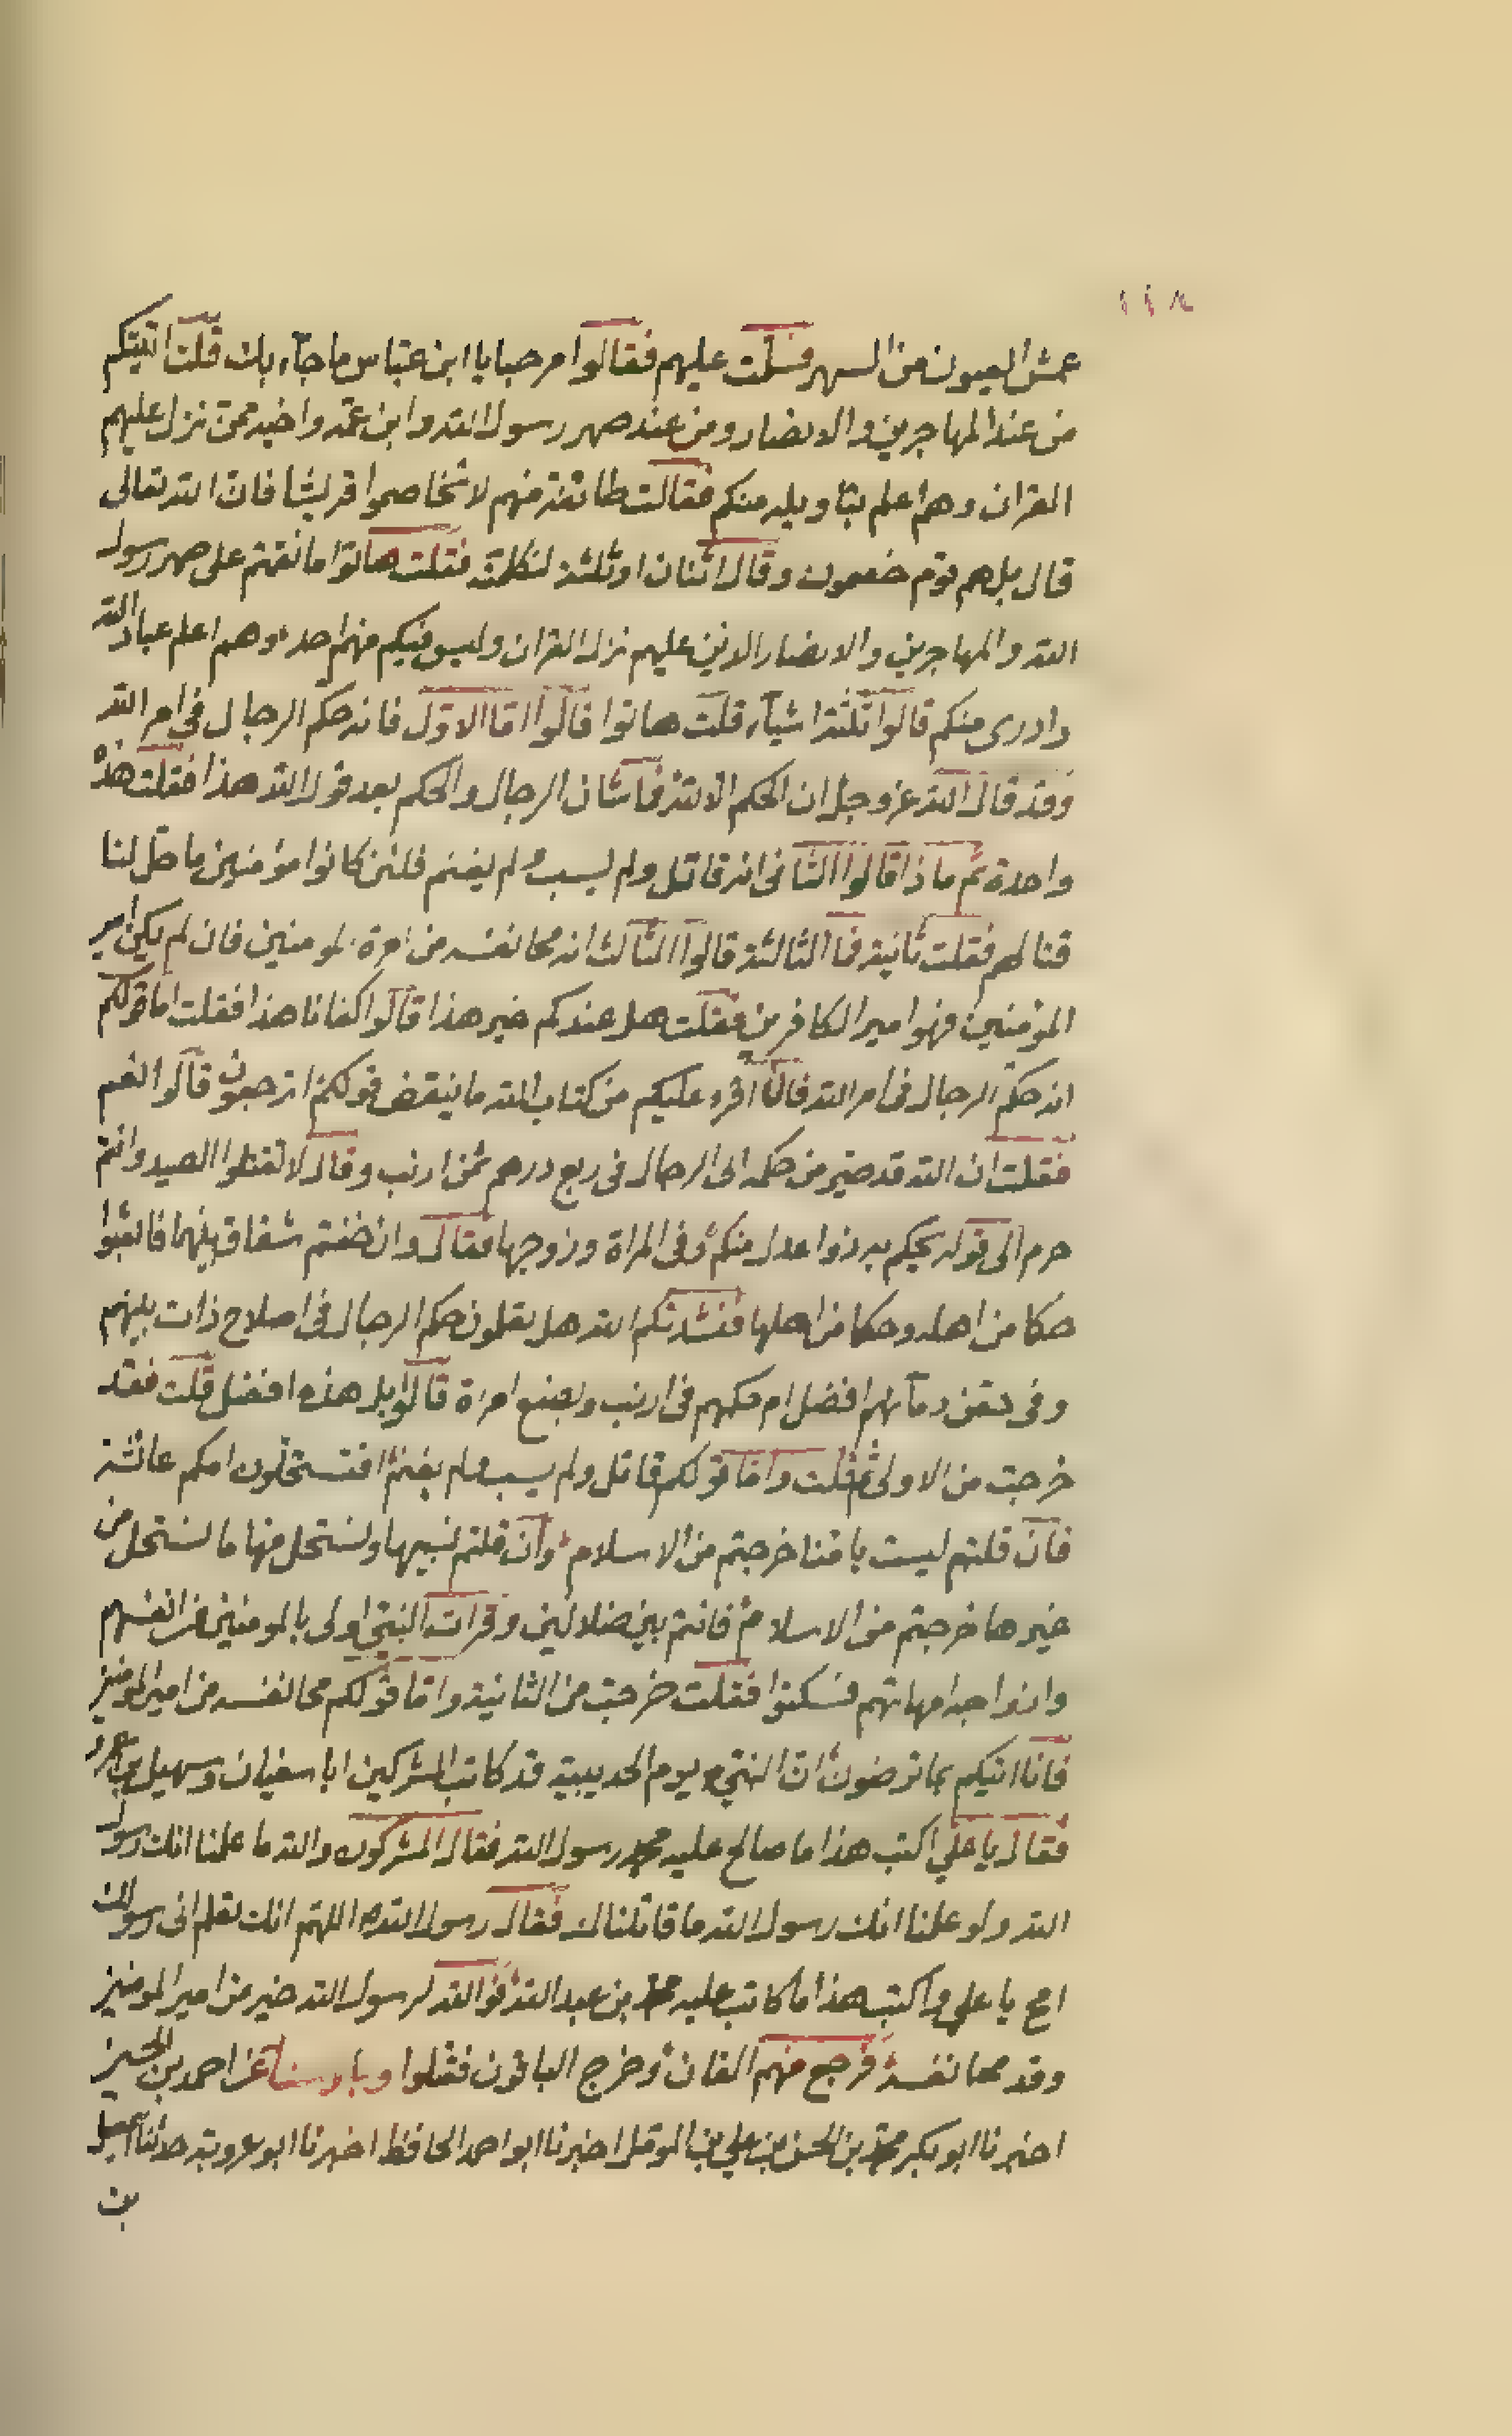 ١١٨
عمش العيون من السهر فسلمت عليهم فقالوا مرحبا يا ابن عباس ما جآء بك قلت اتيتكم
من عند المهاجرين والانصار ومن عند صهر رسول الله وابن عمه واخيه ممن نزل عليهم
القران وهم اعلم بتاويله منكم فقالت طائفة منهم لا تخاصموا قريشا فان الله تعالى
قال بل هم قوم خصمون وقال اثنان او ثلثة لنكلمنه فقلت هاتوا ما نقمتم على صهر رسول
الله والمهاجرين والانصار الذين عليهم نزل القران وليس فيكم منهم احد وهم اعلم عباد الله
وادرى منكم قالوا ثلثة اشيآء قلت هاتوا قالوا اما الاول فانه حكم الرجال في امر الله
وقد قال الله عز وجل ان الحكم الا لله فما شان الرجال والحكم بعد قول الله هذا فقلت هذه
واحدة ثم ماذا قالوا الثاني انه قاتل ولم يسب ولم يغنم فلئن كانوا مؤمنين ما حل لنا
قتالهم فقلت ثانية فما الثالثة قالوا الثالث انه محا نفسه من امرة المومنين فان لم يكن امير
المؤمنين فهو امير الكافرين فقلت هل عندكم غير هذا قالوا كفانا هذا فقلت اما قولكم
انه حكم الرجال في امر الله فانا اقرء عليكم من كتاب الله ما ينقض قولكم اترجعون قالوا نعم
فقلت ان الله قد صير من حكمه الى الرجال في ربع درهم ثمن ارنب وقال لا تقتلوا الصيد وانتم
حرم الى قوله يحكم به ذوا عدل منكم وفي المراة وزوجها فقال وان خفتم شقاق بينهما فابعثوا
حكما من اهله وحكما من اهلها فنشدتكم الله هل تعلمون حكم الرجال في اصلاح ذات بينهم
وفي حقن دمآئهم افضل ام حكمهم في ارنب وبضع امراة قالوا بل هذه افضل قلت فقد
خرجت من الاولى ثم قلت واما قولكم قاتل ولم يسب ولم يغنم افتستحلون امكم عائشة
فان قلتم ليست بامنا خرجتم من الاسلام وان قلتم نسبيها ونستحل منها ما نستحل من
غيرها خرجتم من الاسلام فانتم بين ضلالتين وقرات النبي اولى بالمومنين من انفسهم
وازواجه امهاتهم فسكتوا فقلت خرجت من الثانية واما قولكم محا نفسه من امير المومنين
فانا اتيكم بما ترضون ان النبي يوم الحديبية قد كاتب المشركين ابا سفيان وسهيل بن عمرو
فقال يا علي اكتب هذا ما صالح عليه محمد رسول الله فقال المشركون والله ما علمنا انك رسول
الله ولو علمنا انك رسول الله ما قاتلناك فقال رسول الله اللهم انك تعلم اني رسولك
امح يا علي واكتب هذا ما كاتب عليه محمد بن عبد الله فوالله لرسول الله خير من امير المومنين
وقد محا نفسه فرجع منهم الفان وخرج الباقون فقتلوا وبا سنا عن احمد بن الحسين
اخبرنا ابو بكر محمد بن الحسن بن علي بن المومل اخبرنا ابو احمد الحافظ اخبرنا ابو عروبة حدثنا
بن